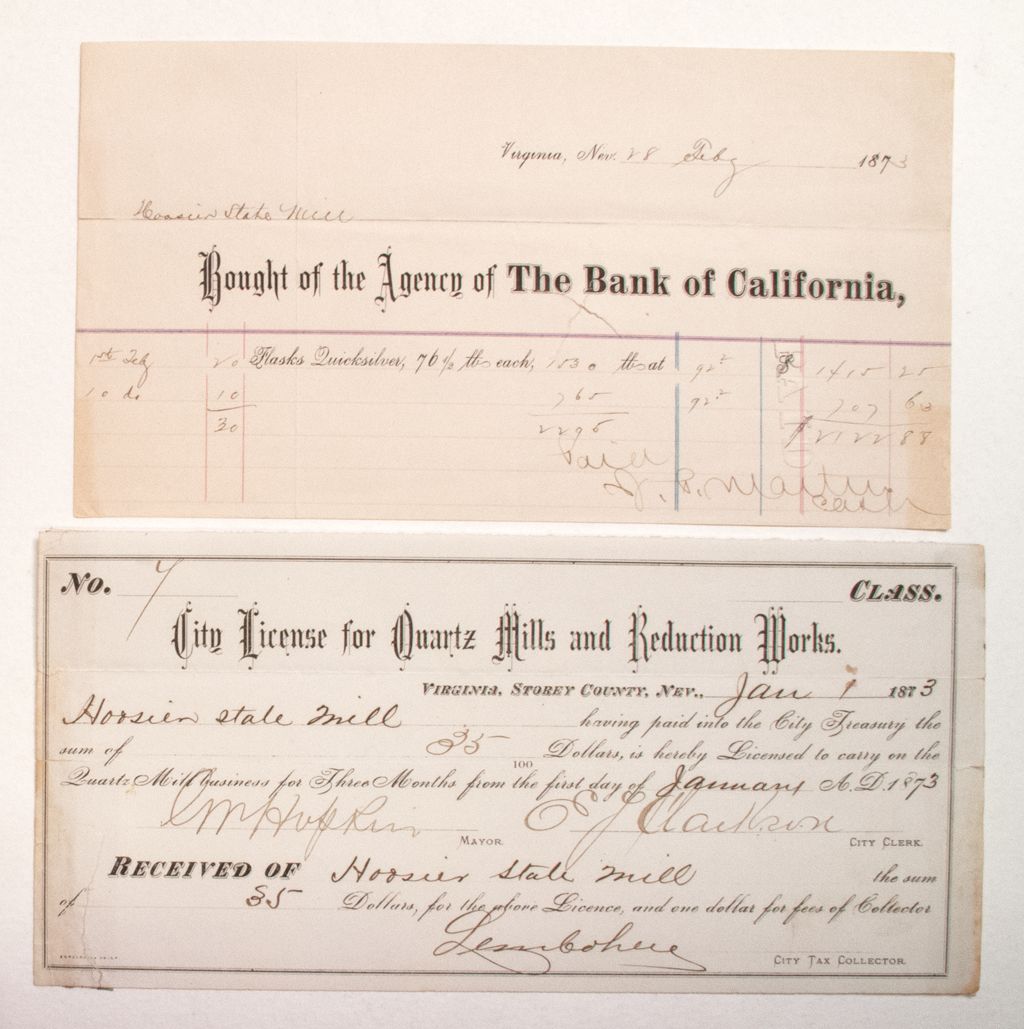 Virginia, Nev. 28 Feby 1873
Hoosier State Mill
Bought of the Agency of The Bank of California,
1st Feby 20 Flasks Quicksilver, 76 1/2 lbs each, 1530 lbs at 92 1/2 $ 1415 25
10 do 10 765 92 1/2 707 63
30 2295 $ 2122 88
Paid
Martin
Cash
No. 7 CLASS.
City License for Quartz Mills and Reduction Works.
VIRGINIA, STOREY COUNTY, NEV., Jan 1 1873
Hoosier state mill having paid into the City Treasury the
sum of 35 100 Dollars, is hereby Licensed to carry on the
Quartz Mill business for Three Months from the first day of January A. D. 1873
MAYOR CITY CLERK.
RECEIVED OF Hoosier state mill the sum
of 35 Dollars, for the above Licence, and one dollar for fees of Collector
CITY TAX COLLECTOR